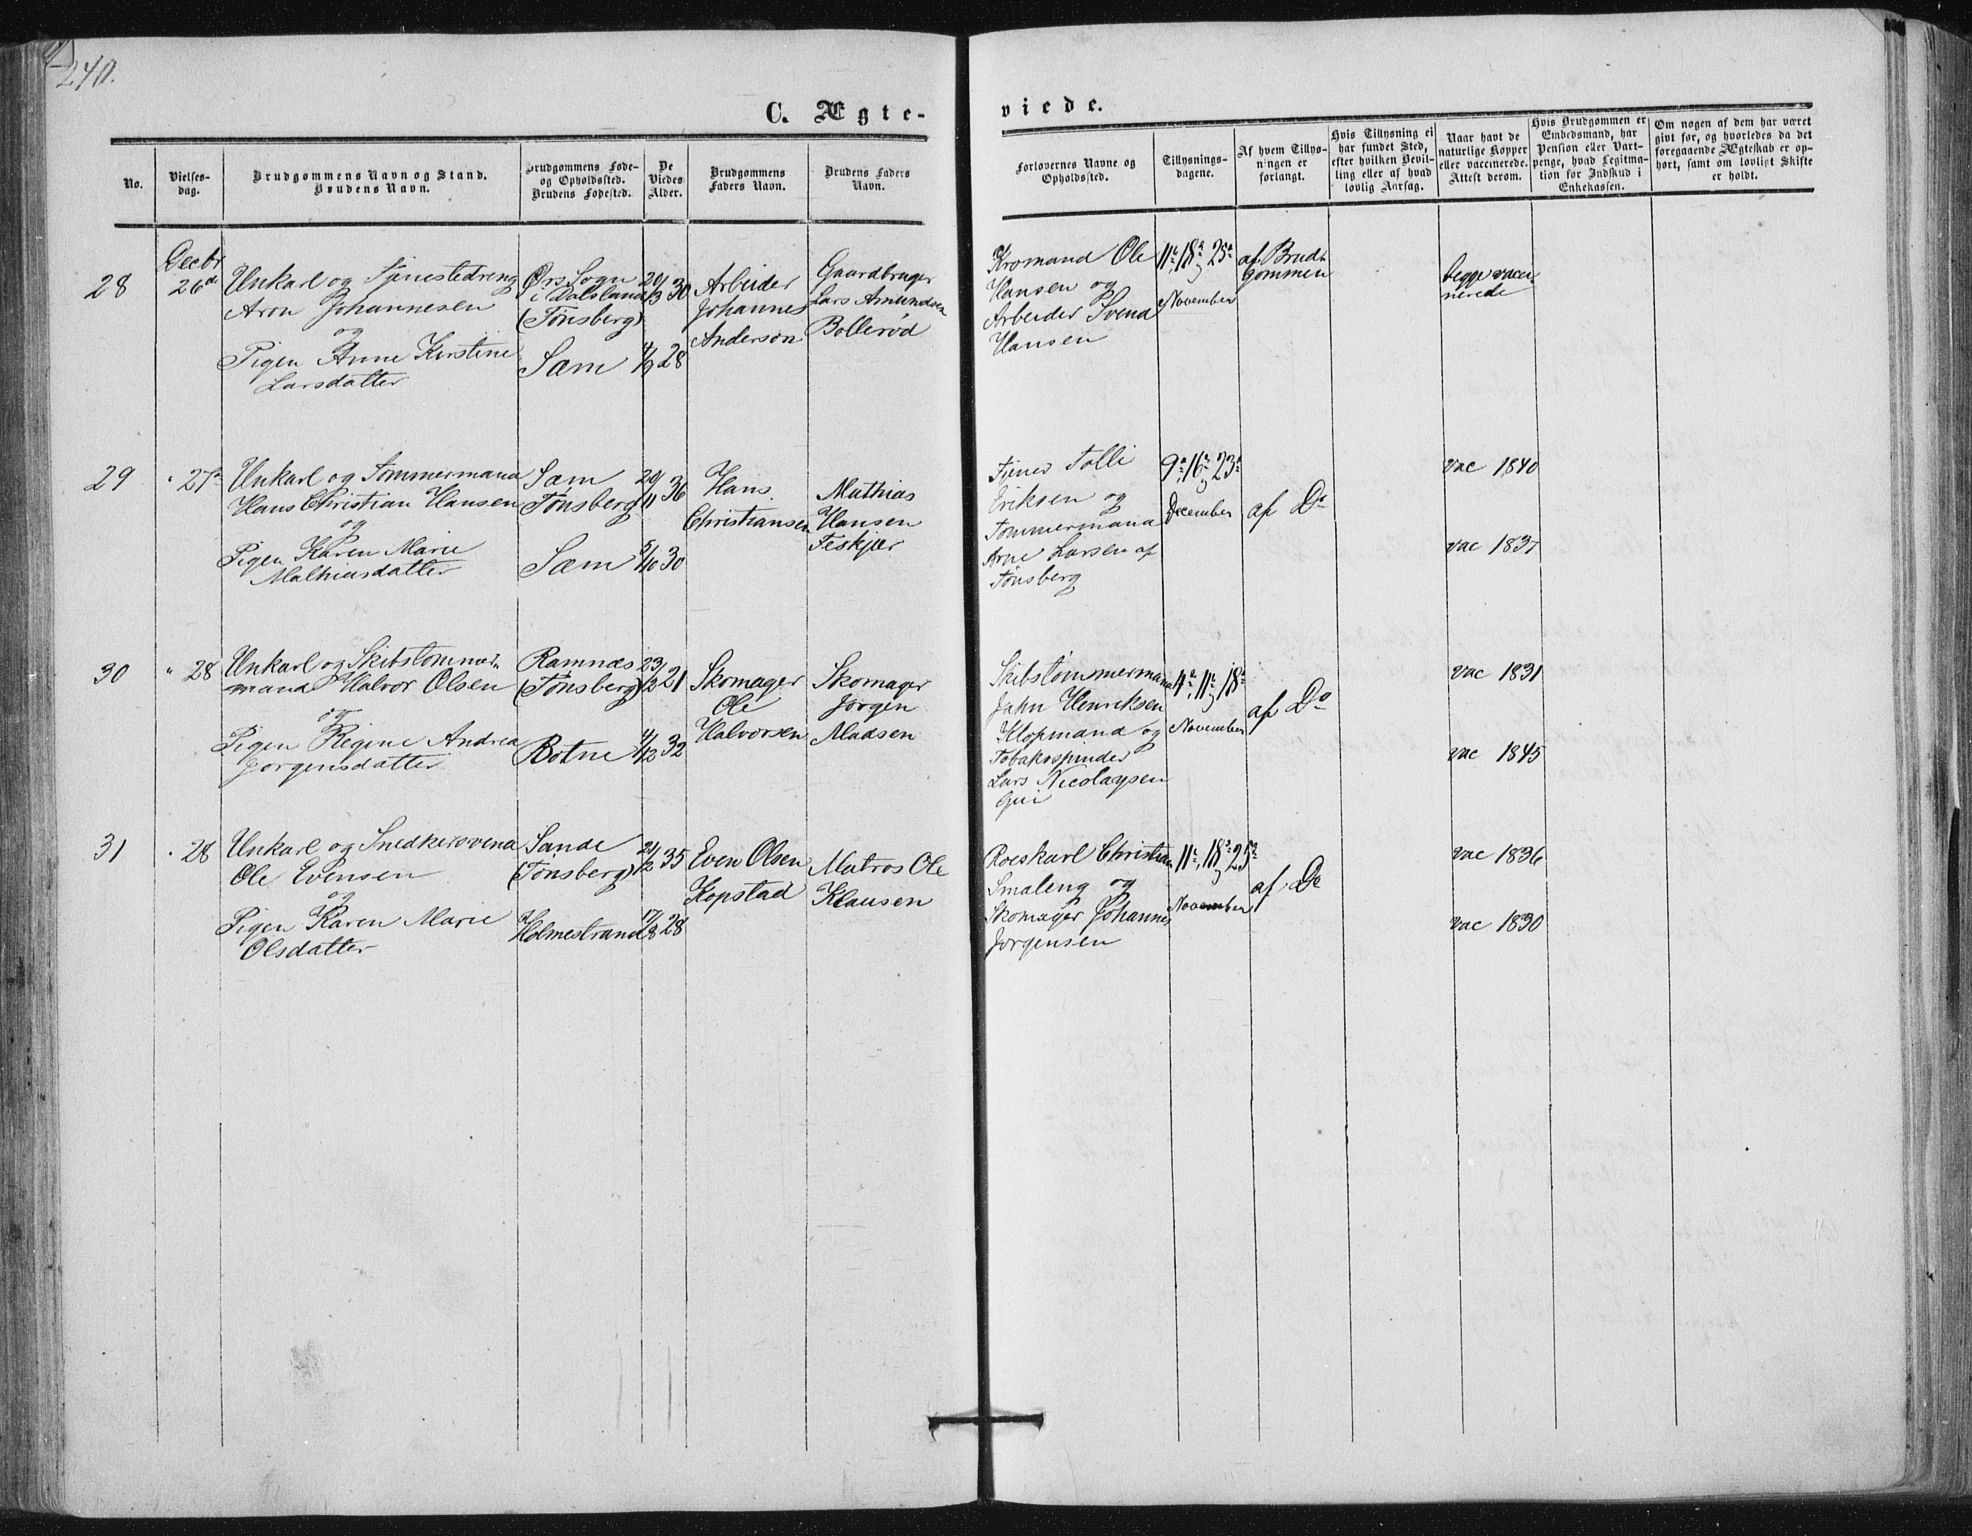 240.
C. Ægte-
viede.
No.
Vielses-
dag.
Brudgommens Navn og Stand.
Brudens Navn.
Brudgommens Føde-
og Opholdssted.
Brudens Fødested.
De
Viedes
Alder.
Brudgommens
Faders Navn.
Brudens Faders
Navn.
Forlovernes Navne og
Opholdssted.
Tillysnings-
dagene.
Af hvem Tillys-
ningen er
forlangt.
Hvis Tillysning ei
har fundet Sted,
efter hvilken Bevil-
ling eller af hvad
lovlig Aarsag.
Naar havt de
naturlige Kopper
eller vaccinerede.
Attest derom.
Hvis Brudgommen er
Embedsmand, har
Pension eller Vart-
penge, hvad Legitma-
tion for Indskud i
Enkekassen.
Om nogen af dem har været
givt før, og hvorledes da det
foregaaende Ægteskab er op-
hørt, samt om lovligt Skifte
er holdt.
28
Decbr
26de
Unkarl og Tjenestedreng
Aron Johannesen
og
Pigen Anne Kirstine
Larsdatter
Ørs Sogn
i Dalsland
(Tønsberg)
Sæm
20/3 30
4/9 28
Arbeider
Johannes
Anderson
Gaardbruger
Lars Amundsen
Bollerød
Kromand Ole
Hansen og
Arbeider Svend
Hansen
11te, 18de, 25de
November
af Brud-
gommen
begge vacci-
nerede
29
" 27de
Unkarl og Tømmermand
Hans Christian Hansen
og
Pigen Karen Marie
Mathiasdatter
Sæm
Tønsberg
Sæm
20/11 36
5/10 30
Hans
Christiansen
Mathias
Hansen
Feskjær
Tjener Tolli
Eriksen og
Tømmermand
Arne Larsen af
Tønsberg
9de, 16de, 23de
December
af Do
vac 1840
vac 1837
30
" 28
Unkarl og Skibstømmer-
mand Halvor Olsen
og
Pigen Regine Andrea
Jørgensdatter
Ramnæs
(Tønsberg)
Botne
23/2 21
4/12 32
Skomager
Ole
Halvorsen
Skomager
Jørgen
Madsen
Skibstømmermand
John Henriksen
Klopmand og
Tobakspinder
Lars Nicolaysen
4de, 11te, 18de
November
af Do
vac 1831
vac 1845
31
" 28
Unkarl og Snedkersvend
Ole Evensen
og
Pigen Karen Marie
Olsdatter
Sande
(Tønsberg)
Holmestrand
21/2 35
17/8 28
Even Olsen
Kopstad
Matros Ole
Klausen
Roeskarl Christian
Smaleng og
Skomager Johannes
Jørgensen
11te, 18de, 25de
November
af Do
vac 1836
vac 1830